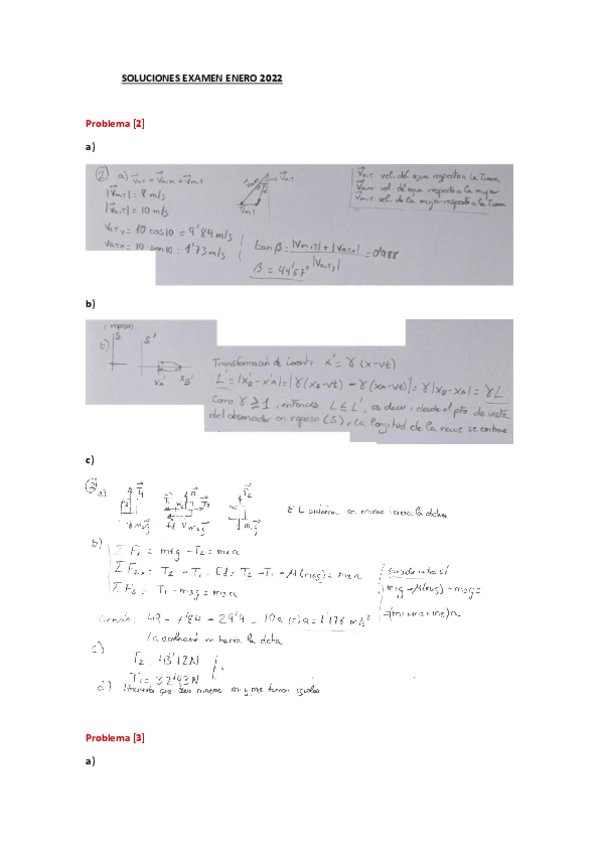 SOLUCIONES EXAMEN ENERO 2022
Problema [2]
a)
2) a) V⃗A,T = V⃗A,M + V⃗M,T
|V⃗M,T| = 8 m/s
|V⃗A,T| = 10 m/s
VAT y = 10 cos10 = 9'84 m/s
VAT x = 10 sen10 = 1'73 m/s
tan β = |VM,T| + |VATx| / |VA,Ty| = 0'988
β = 44'67°
V⃗A,T: vel. del agua respecto a la Tierra
V⃗A,M: vel. del agua respecto a la mujer
V⃗M,T: vel. de la mujer respecto a la Tierra
b)
(reposo)
S S'
b)
xA' xB'
Transformación de Lorentz x' = γ (x-vt)
L' = |xB' - x'A| = |γ(xB-vt) - γ(xA-vt)| = γ|xB-xA| = γL
Como γ ≥ 1, entonces L ≤ L', es decir, desde el pto de vista
del observador en reposo (S), la longitud de la nave se contrae
c)
a)
El sistema se mueve hacia la dcha
b)
Σ F1 = m1g - T2 = m1a
Σ F2x = T2 - T1 - Ff = T2 - T1 - μ(m2g) = m2a
Σ F3 = T1 - m3g = m3a
m1g - μ(m2g) - m3g =
=(m1+m2+m3)a
49 - 7'84 - 29'4 = 10a a = 1'176 m/s²
la aceleración es hacia la dcha
c)
T2 = 43'12N
T1 = 32'93N
d) Haciendo que m1 y m3 sean iguales
Problema [3]
a)